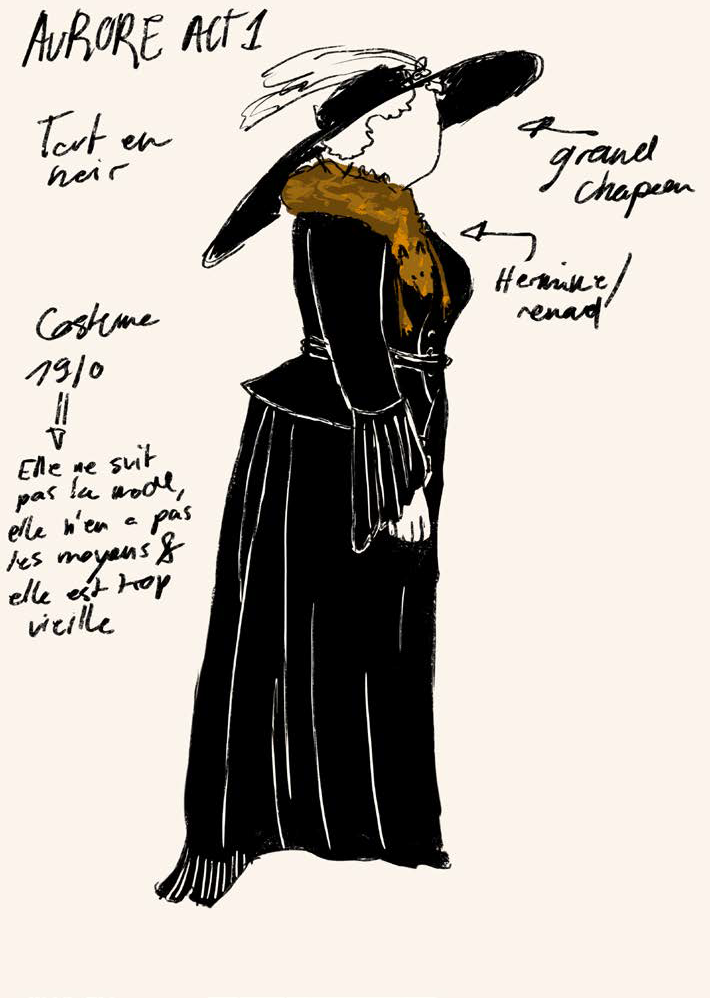 AURORE ACT 1
Tout en
noir
grand
chapeau
Hermine/
renard
Costume
1910
Elle ne suit
pas la mode,
elle n'en a pas
les moyens &
elle est trop
vieille